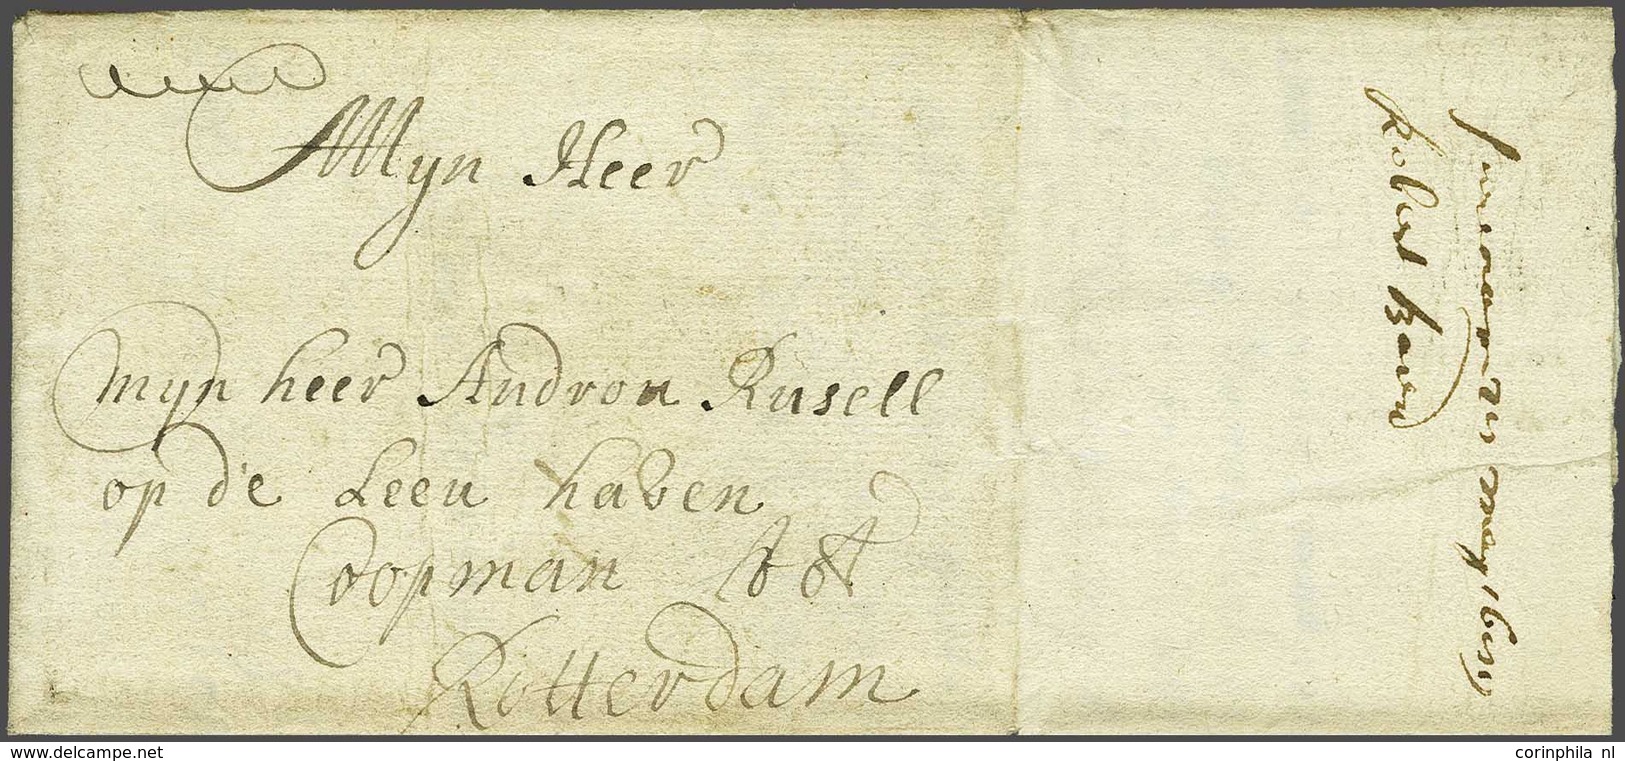 Mijn Heer
mijn heer Androu Rusell
op de Leeu haven
Coopman tot
Rotterdam
Robert
delcampe.net
corinphila nl